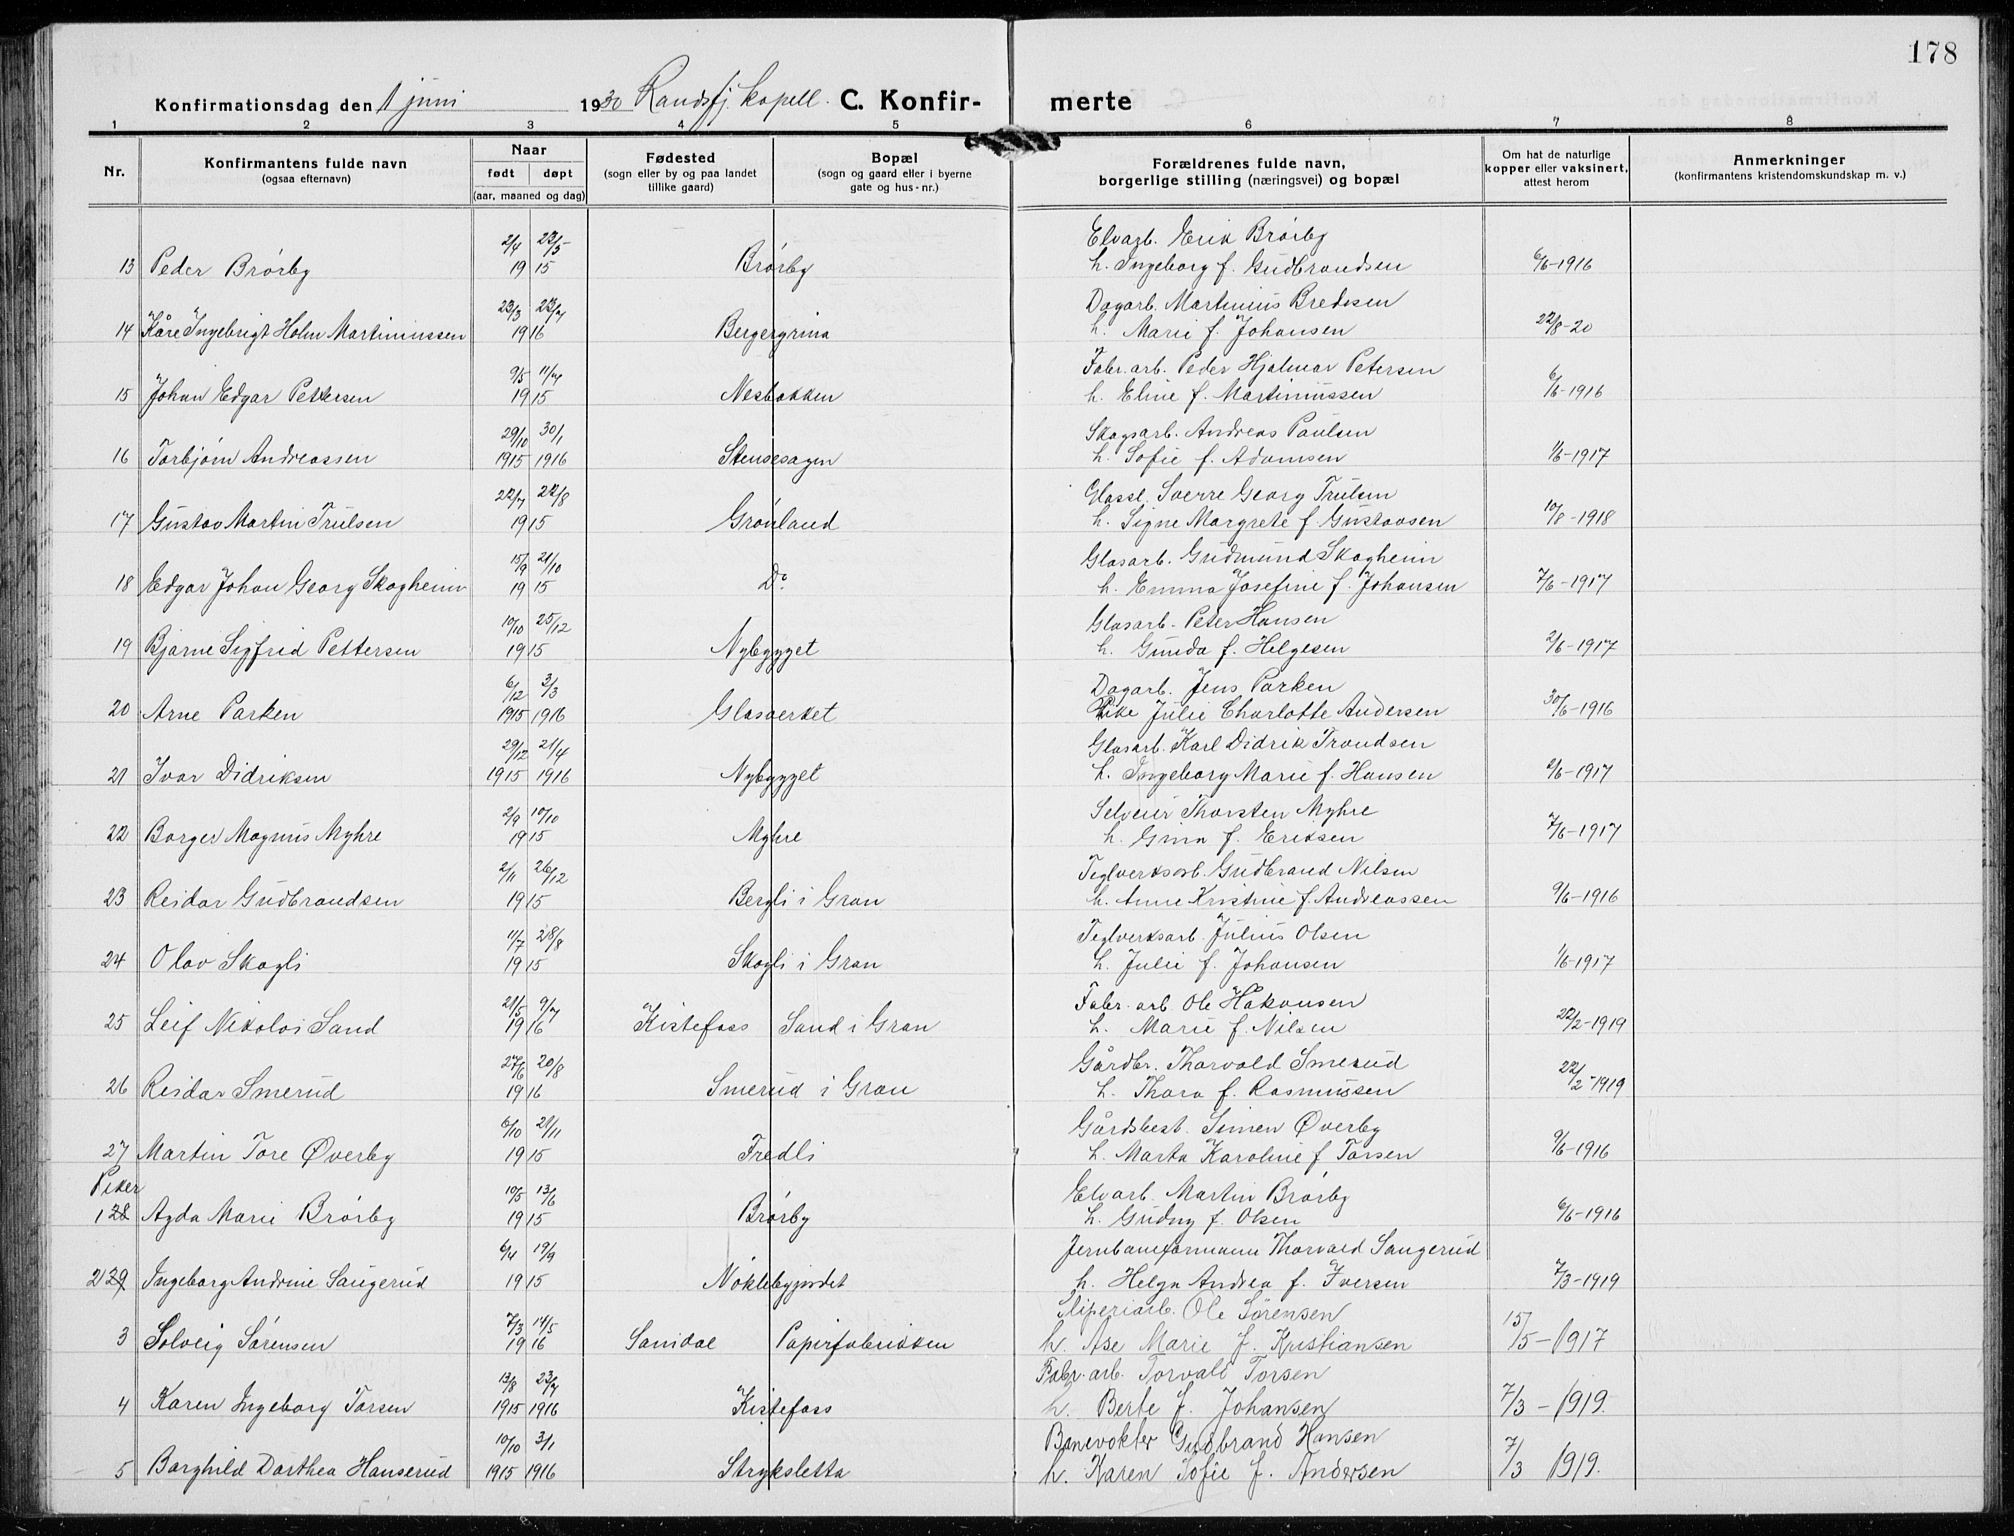 178
Konfirmationsdag den 1 juni 1930 Randsfj. kapell. C. Konfir- merte
1 2 3 4 5 6 7 8
Nr. Konfirmantens fulde navn (ogsaa efternavn) Naar født døpt (aar, maaned og dag) Fødested (sogn eller by og paa landet tillike gaard) Bopæl (sogn og gaard eller i byerne gate og hus-nr.) Forældrenes fulde navn, borgerlige stilling (næringsvei) og bopæl Om hat de naturlige kopper eller vaksinert, attest herom Anmerkninger (konfirmantens kristendomskundskap m. v.)
2/4 23/5 Elvarb. Erik Brørby
13 Peder Brørby 19 15 Brørby h. Ingeborg f. Gudbrandsen 6/6-1916
23/3 23/7 Dagarb. Martinius Bredesen
14 Kåre Ingebrigt Holm Martiniussen 19 16 Bergergrina h. Marie f. Johansen 22/8-20
9/5 11/7 Fabr. arb. Peder Hjalmar Petersen
15 Johan Edgar Pettersen 19 15 Nesbakken h. Eline f. Martiniussen 6/6-1916
29/10 30/1 Skogsarb. Andreas Paulsen
16 Torbjørn Andreassen 1915 1916 Stensesagen h. Sofie f. Adamsen 1/6-1917
22/7 22/8 Glassl. Sverre Georg Trulsen
17 Gustav Martin Trulsen 19 15 Grønland h. Signe Margrete f. Gustavsen 10/8-1918
15/9 21/10 Glasarb. Gudmund Skogheim
18 Edgar Johan Georg Skogheim 19 15 Do. h. Emma Josefine f. Johansen 7/6-1917
10/10 25/12 Glasarb. Peter Hansen
19 Bjarne Sigfred Pettersen 19 15 Nybygget h. Gunda f. Helgesen 2/6-1917
6/12 3/3 Dagarb. Jens Parken
20 Arne Parken 1915 1916 Glasverket Pike Julie Charlotte Andersen 30/6-1916
29/12 21/4 Glasarb. Karl Didrik Trondsen
21 Ivar Didriksen 1915 1916 Nybygget h. Ingeborg Marie f. Hansen 6/6-1917
2/9 10/10 Selveier Thorsten Myhre
22 Borger Magnus Myhre 19 15 Myhre h. Gina f. Eriksen 7/6-1917
2/11 26/12 Teglverksarb. Gudbrand Nilsen
23 Reidar Gudbrandsen 19 15 Bergli i Gran h. Anne Kristine f. Andreassen 9/6-1916
11/7 28/8 Teglverksarb. Julius Olsen
24 Olav Skogli 19 15 Skogli i Gran h. Julie f. Johansen 1/6-1917
21/5 9/7 Fabr. arb. Ole Håkonsen
25 Leif Nikolai Sand 19 16 Kistefoss Sand i Gran h. Marie f. Nilsen 22/2-1919
27/6 20/8 Gårdbr. Thorvald Smerud
26 Reidar Smerud 19 16 Smerud i Gran h. Thora f. Rasmussen 22/2-1919
6/10 21/11 Gårdsbest. Simen Øverby
27 Martin Tore Øverby 19 15 Fredli h. Marta Karoline f. Torsen 9/6-1916
Piker
10/5 13/6 Elvarb. Martin Brørby
1 28 Agda Marie Brørby 19 15 Brørby h. Gudny f. Olsen 6/6-1916
6/4 19/9 Jernbaneformann Thorvald Saugerud
2 29 Ingeborg Andrine Saugerud 19 15 Nøklebyjordet h. Helga Andrea f. Iversen 7/3-1919
7/3 14/5 Sliperiarb. Ole Sørensen
3 Solveig Sørensen 19 16 Sanidal Papirfabrikken h. Åse Marie f. Kristiansen 15/5-1917
13/8 23/7 Fabr. arb. Torvald Torsen
4 Karen Ingeborg Torsen 1915 1916 Kistefoss h. Berte f. Johansen 7/3-1919.
10/10 3/1 Banevokter Gudbrand Hansen
5 Borghild Dorthea Hanserud 1915 1916 Stryksletta h. Karen Sofie f. Andersen 7/3 1919.